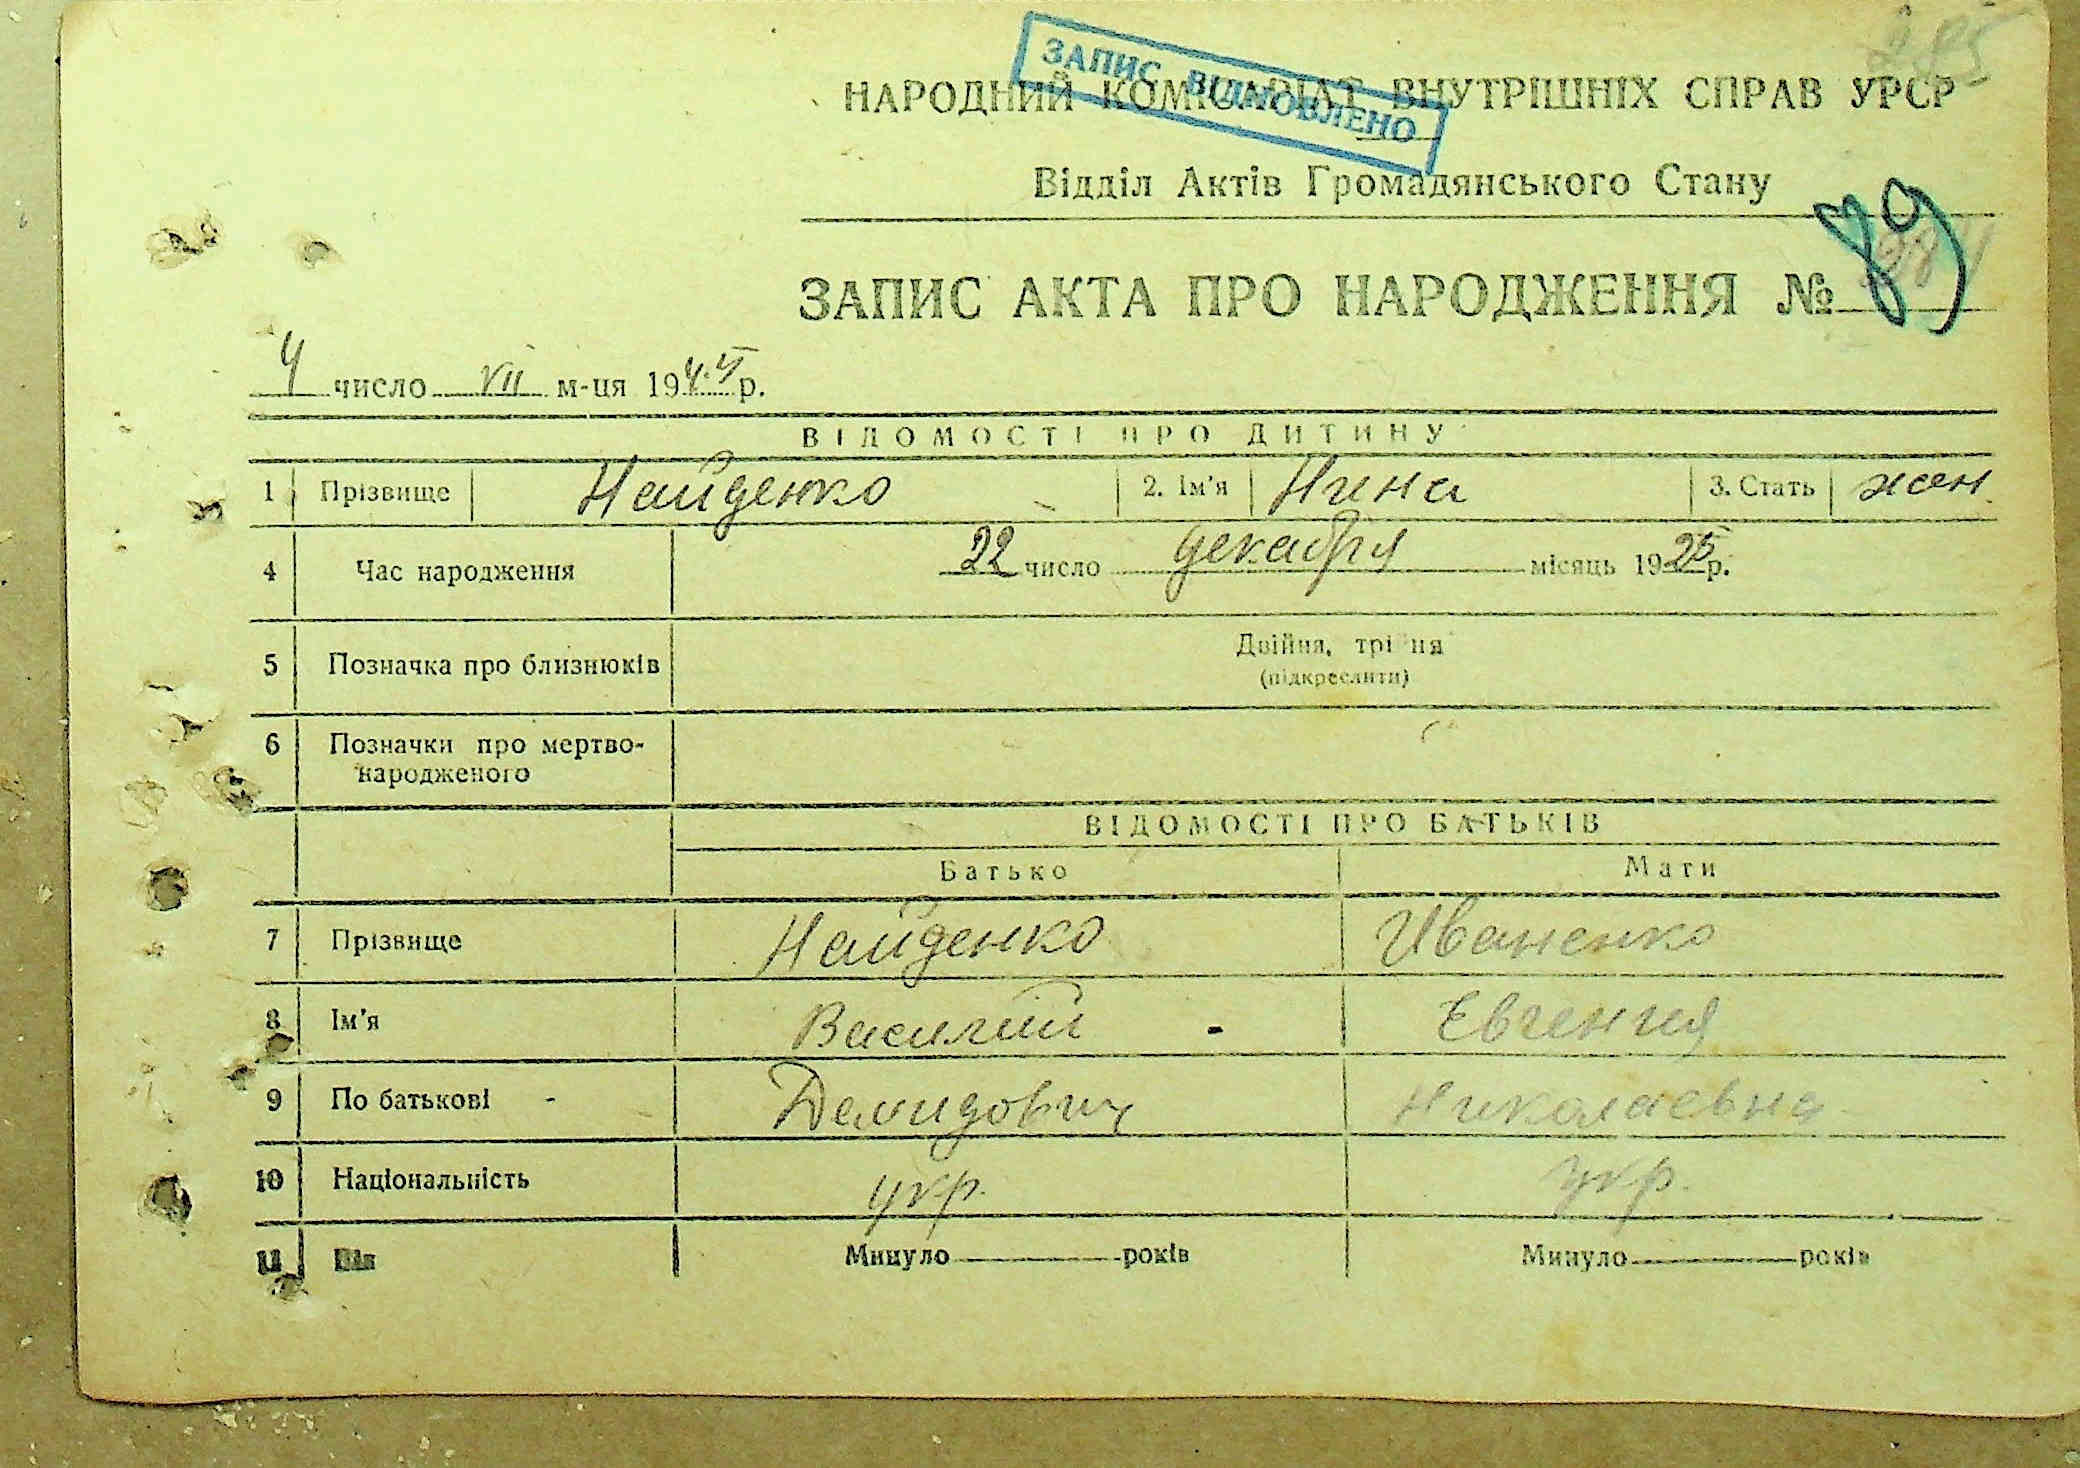 285
ЗАПИС ВІДНОВЛЕНО
НАРОДНИЙ КОМІСАРІАТ ВНУТРІШНІХ СПРАВ УРСР
Відділ Актів Громадянського Стану
ЗАПИС АКТА ПРО НАРОДЖЕННЯ № 89
4 число VII м-ця 1944 р.
ВІДОМОСТІ ПРО ДИТИНУ
1 Прізвище Найденко 2. Ім'я Нина 3. Стать жен
4 Час народження 22 число декабря місяць 1925 р.
5 Позначка про близнюків Двійня, трійня
(підкреслити)
6 Позначки про мертво-
народженого
ВІДОМОСТІ ПРО БАТЬКІВ
Батько Мати
7 Прізвище Найденко Иваненко
8 Ім'я Василий Евгения
9 По батькові Демидович Николаевна
10 Національність укр. укр.
11 Вік Минуло років Минуло років